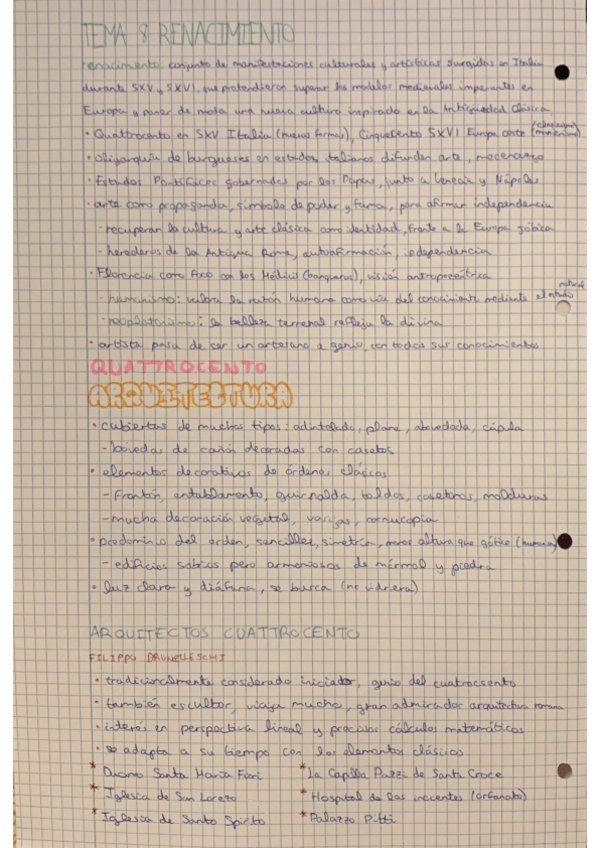 TEMA 8 RENACIMIENTO
renacimiento: conjunto de manifestaciones culturales y artísticas surgidas en Italia
durante SXV y SXVI, que pretendieron superar los modelos medievales imperantes en
Europa y poner de moda una nueva cultura inspirado en la Antigüedad Clásica
• Quattrocento en SXV Italia (nuevas formas), Cinquecento SXVI Europa arte (clasicismo) (manierismo)
• oligarquía de burgueses en estados italianos difunden arte, mecenazgo
• Estados Pontificios gobernados por los Papas, junto a Venecia y Nápoles
• arte como propaganda, símbolo de poder y fama, para afirmar independencia
- recuperar la cultura y arte clásica como identidad, frente a la Europa gótica
- herederos de la Antigua Roma, autoafirmación, independencia
• Florencia como foco con los Médici (banqueros), visión antropocéntrica
- humanismo: valora la razón humana como vía del conocimiento mediante el estudio natural
- neoplatonismo: la belleza terrenal refleja la divina
• artista pasa de ser un artesano a genio, con todos sus conocimientos
QUATTROCENTO
ARQUITECTURA
• cubiertas de muchos tipos: adintelada, plana, abovedada, cúpula
- bóvedas de cañón decoradas con casetos
• elementos decorativos de órdenes clásicos
- frontón, entablamento, guirnalda, toldos, casetones, molduras
- mucha decoración vegetal, vasijas, cornucopia
• predominio del orden, sencillez, simetría, menos altura que gótico (humana)
- edificios sobrios pero armoniosos de mármol y piedra
• luz clara y diáfana, se busca (no vidriera)
ARQUITECTOS CUATTROCENTO
FILIPPO BRUNELLESCHI
• tradicionalmente considerado iniciador, genio del cuatrocento
• también escultor, viaja mucho, gran admirador arquitectura romana
• interés en perspectiva lineal y precisos cálculos matemáticos
• se adapta a su tiempo con los elementos clásicos
* Duomo Santa María Fiori * La Capilla Pazzi de Santa Croce
* Iglesia de San Lorezo * Hospital de los inocentes (orfanato)
* Iglesia de Santo Spirito * Palazzo Pitti